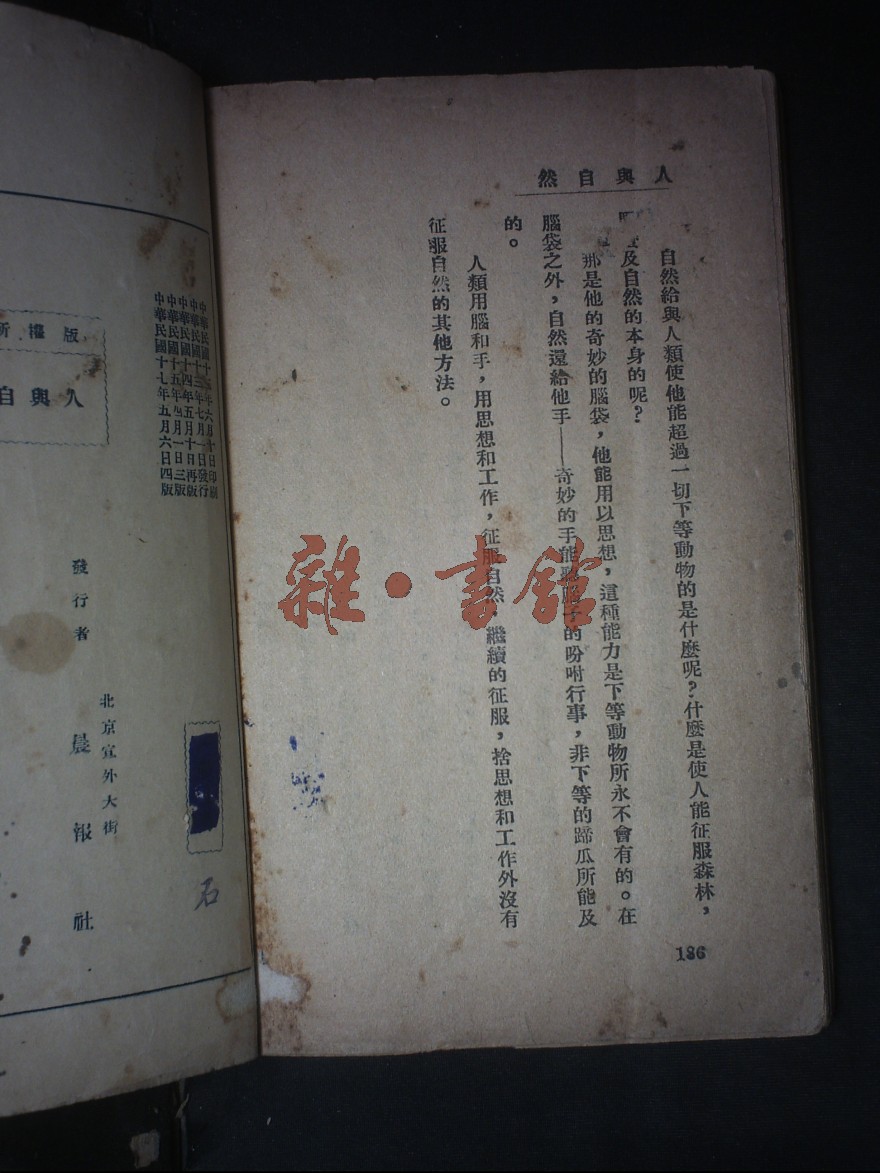 人與自然
自然給與人類使他能超過一切下等動物的是什麼呢？什麼是使人能征服森林，
及自然的本身的呢？
那是他的奇妙的腦袋，他能用以思想，這種能力是下等動物所永不會有的。在
腦袋之外，自然還給他手——奇妙的手能聽腦子的吩咐行事，非下等的蹄瓜所能及
的。
人類用腦和手，用思想和工作，征服自然，繼續的征服，捨思想和工作外沒有
征服自然的其他方法。
186
雜·書館
中華民國十年六月十日印刷
中華民國十三年七月一日發行
中華民國十四年五月十日再版
中華民國十五年四月一日三版
中華民國十七年五月六日四版
版權所
人與自
發行者
北京宣外大街
晨報社
石